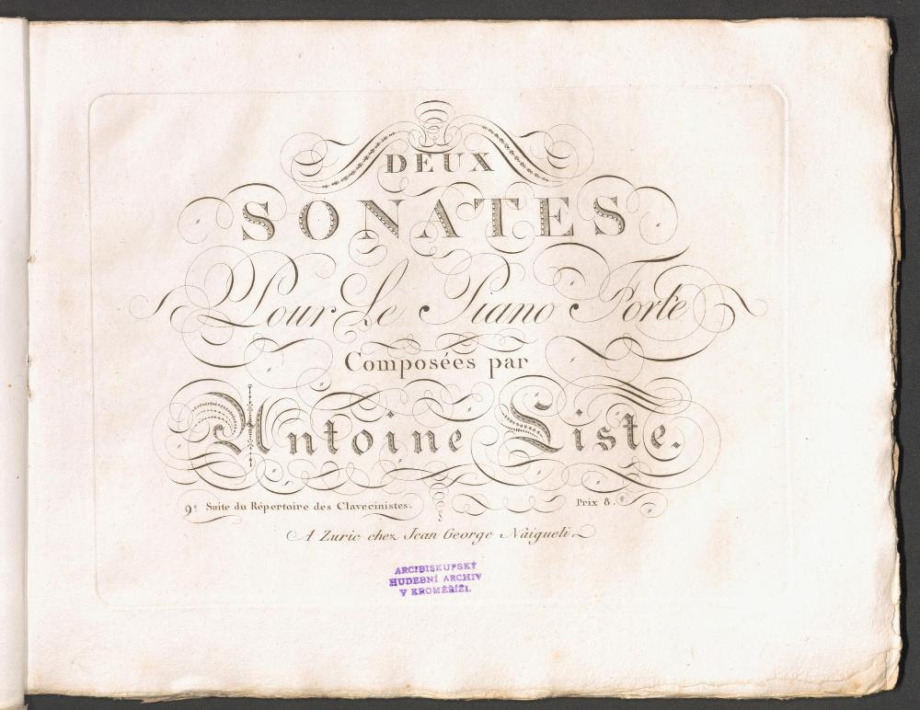 DEUX
SONATES
Pour Le Piano Forte
Composées par
Antoine Liste.
9.e Suite du Répertoire des Clavecinistes. Prix 8.
A Zuric chez Jean George Nàigueli
ARCIBISKUPSKÝ
HUDEBNÍ ARCHIV
V KROMĚŘÍŽI.